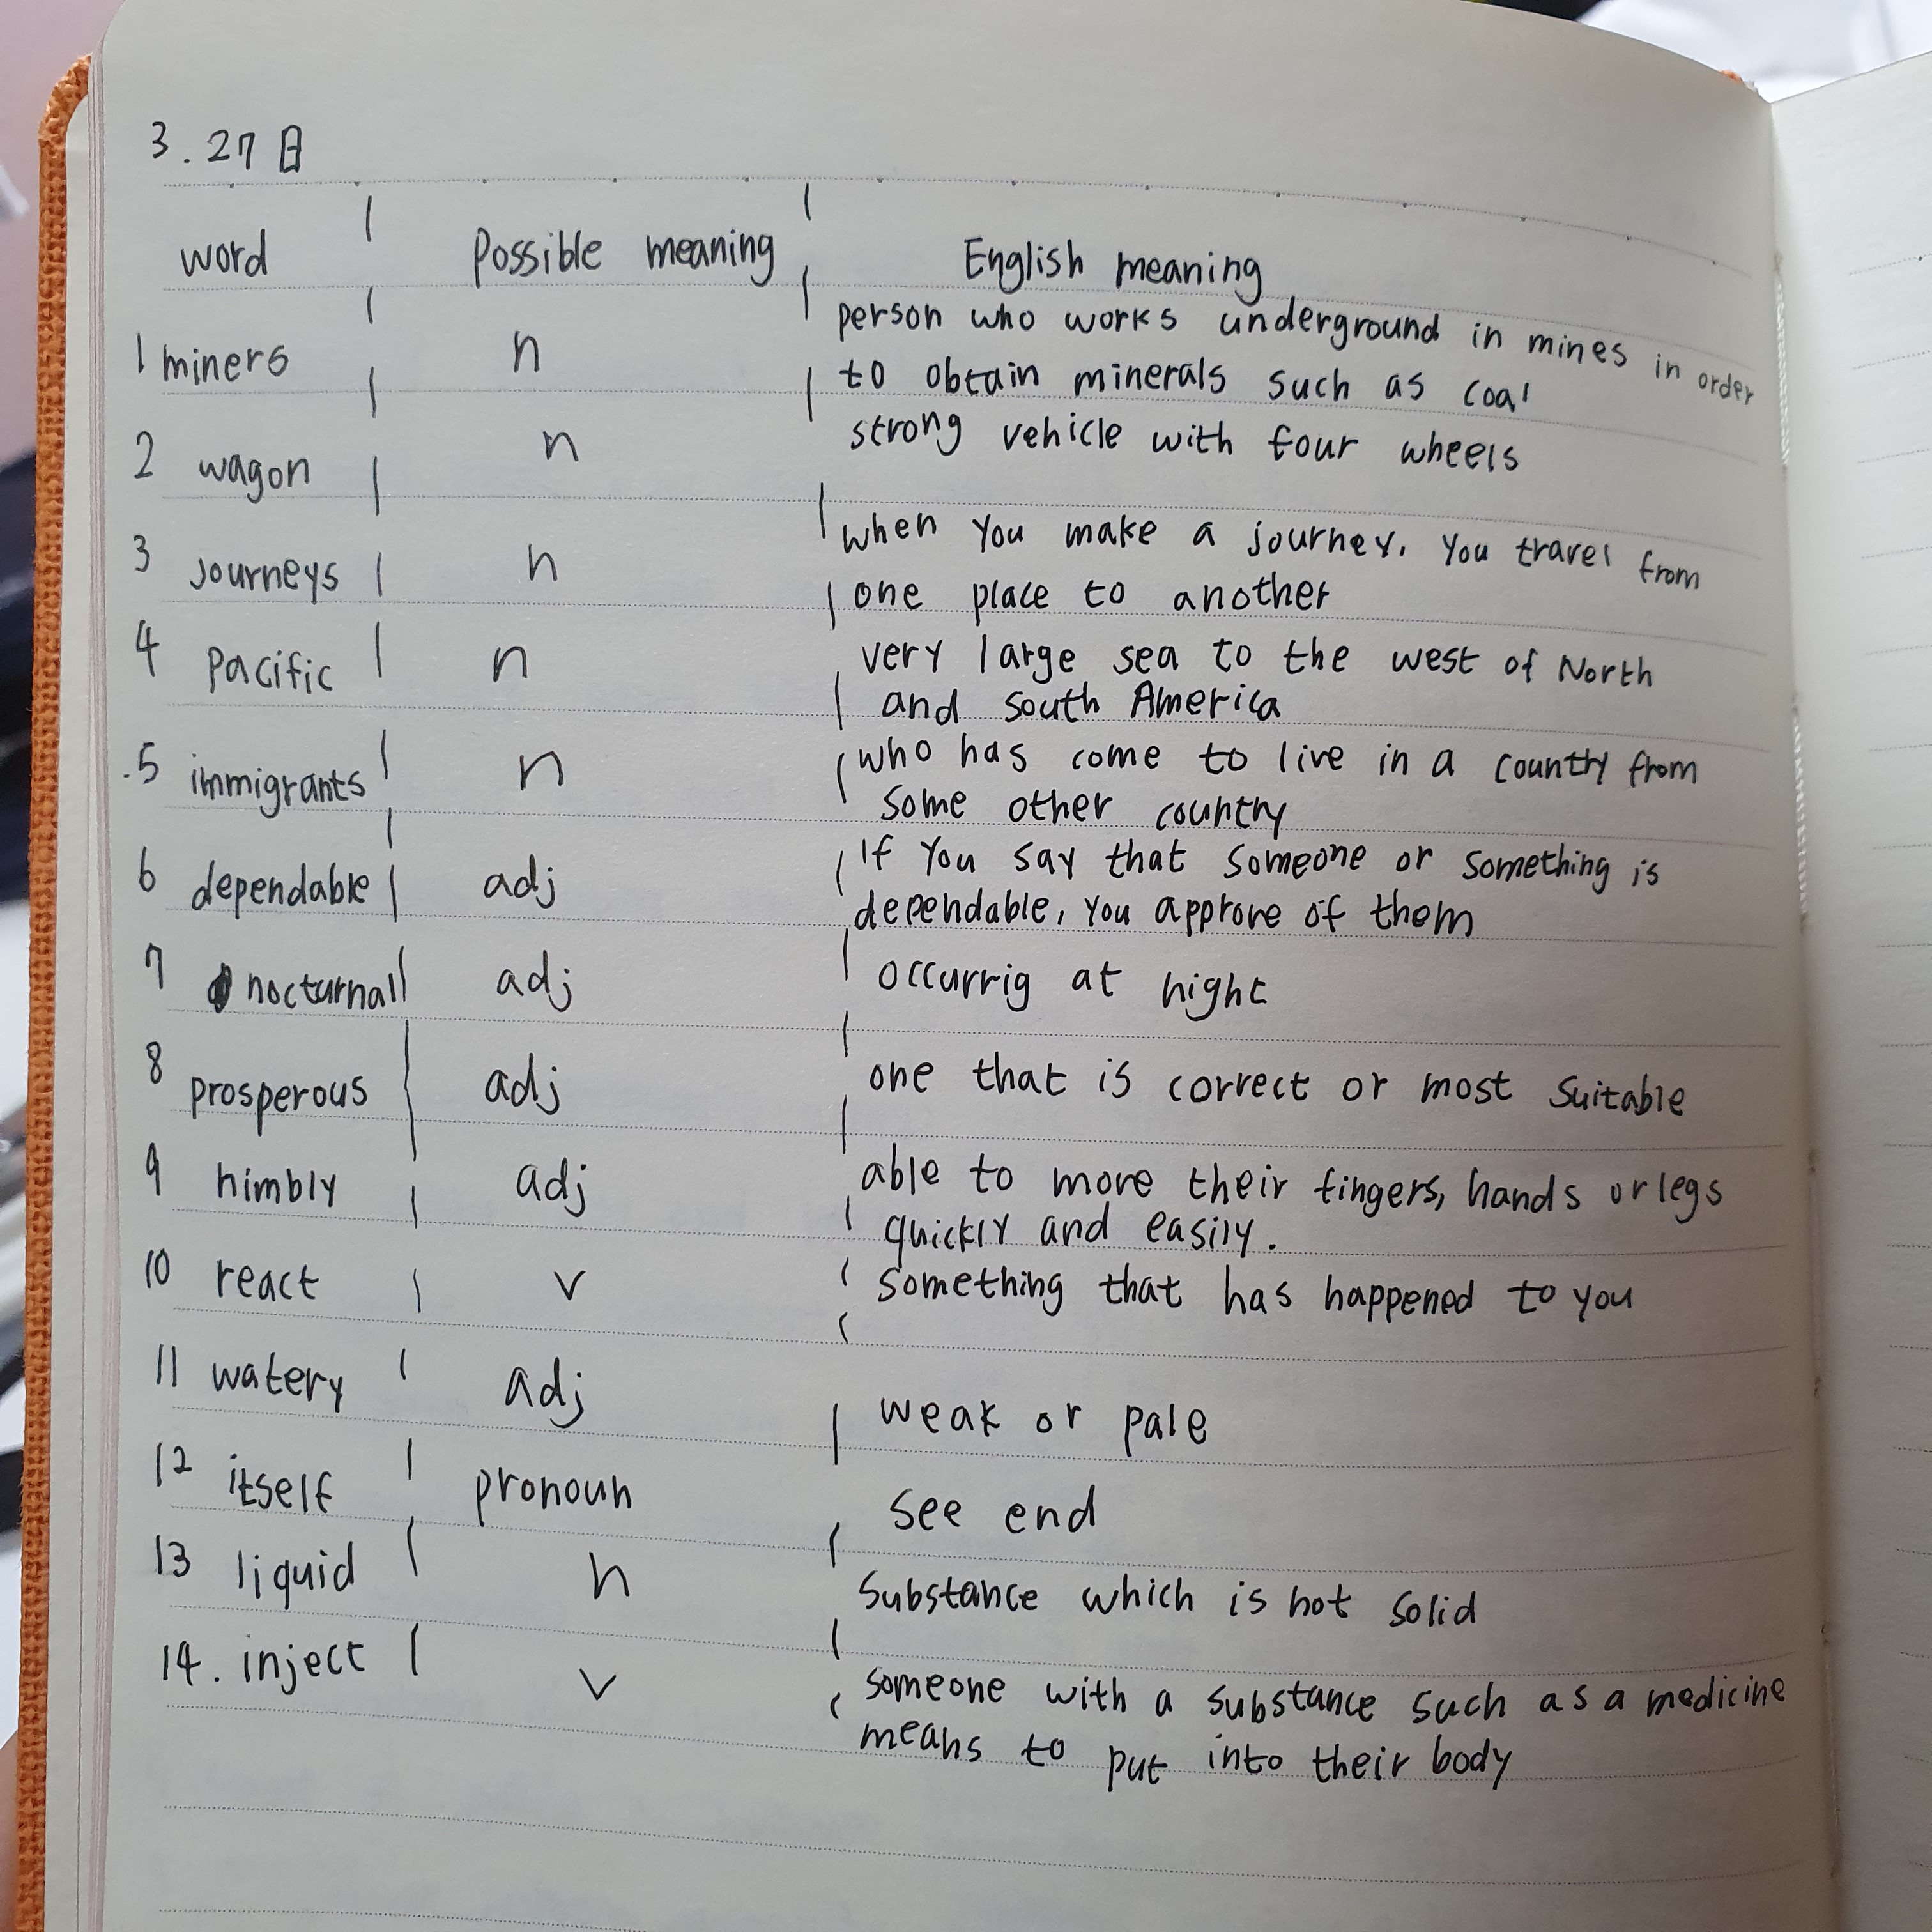 3.27日
word Possible meaning English meaning
1 miners n person who works underground in mines in order
to obtain minerals such as coal
2 wagon n strong vehicle with four wheels
3 Journeys n when you make a journey, you travel from
one place to another
4 Pacific n very large sea to the west of North
and south America
5 immigrants n who has come to live in a country from
some other country
6 dependable adj If you say that someone or something is
dependable, you approve of them
7 nocturnal adj occurrig at night
8 prosperous adj one that is correct or most suitable
9 nimbly adj able to more their fingers, hands or legs
quickly and easily.
10 react v something that has happened to you
11 watery adj weak or pale
12 itself pronoun see end
13 liquid n substance which is not solid
14. inject v someone with a substance such as a medicine
means to put into their body